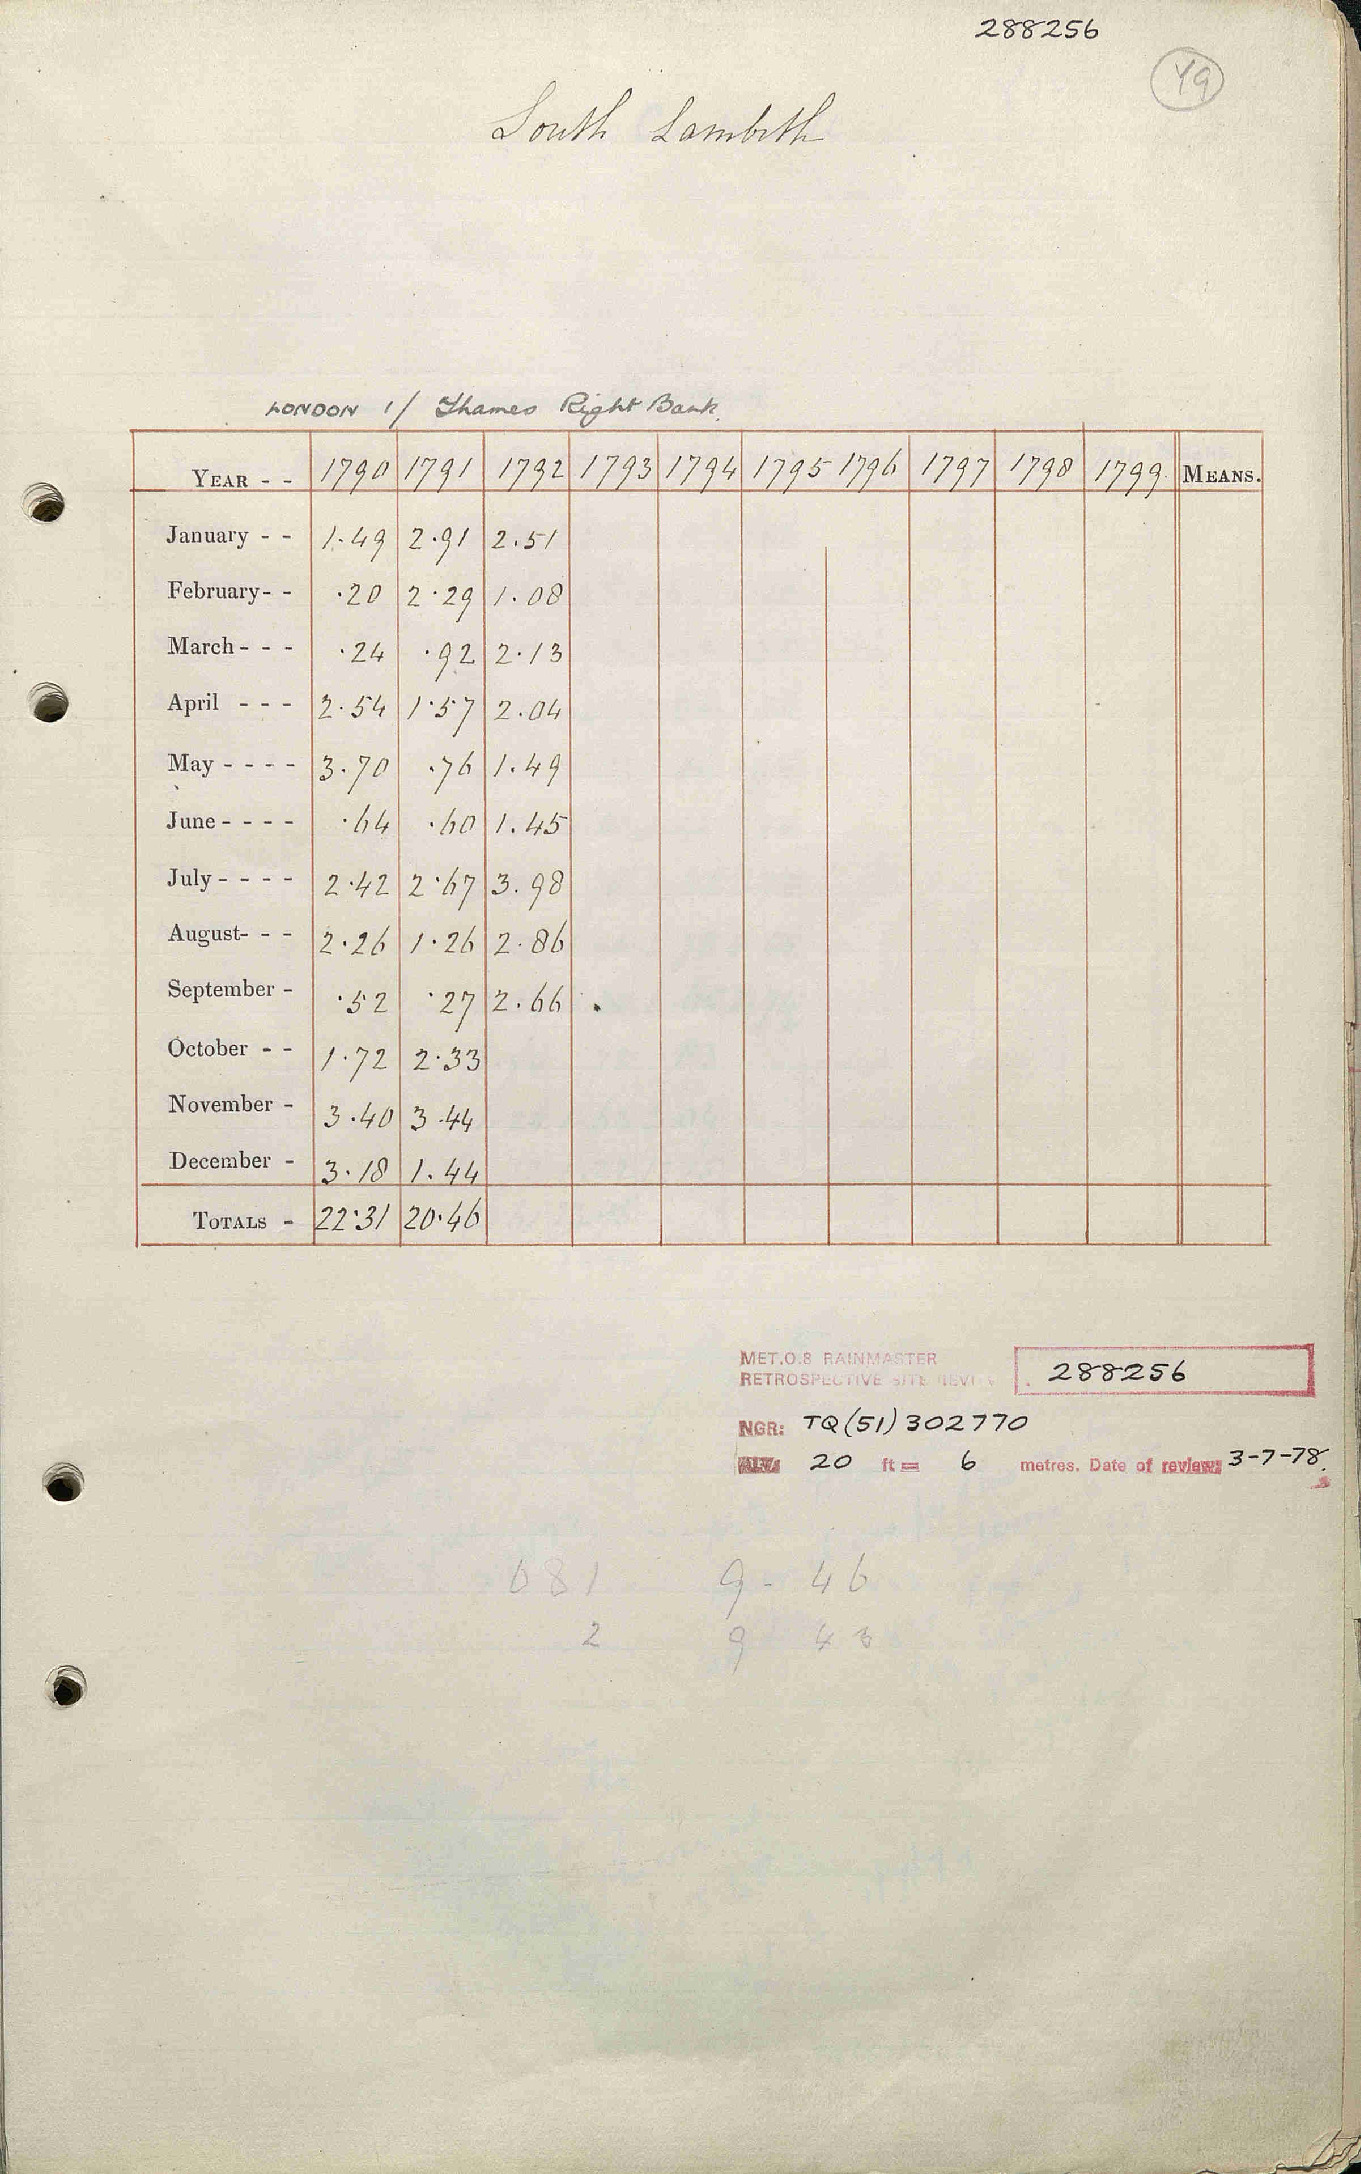 288256
49
South Lambeth
LONDON 1/ Thames Right Bank.
YEAR - - 1790 1791 1792 1793 1794 1795 1796 1797 1798 1799 MEANS.
January - - 1.49 2.91 2.51
February- - .20 2.29 1.08
March - - - .24 .92 2.13
April - - - 2.54 1.57 2.04
May - - - - 3.70 .76 1.49
June - - - - .64 .60 1.45
July - - - - 2.42 2.67 3.98
August- - - 2.26 1.26 2.86
September - .52 .27 2.66
October - - 1.72 2.33
November - 3.40 3.44
December - 3.18 1.44
TOTALS - 22.31 20.46
MET.O.8 RAINMASTER
RETROSPECTIVE SITE REVIEW 288256
NGR: TQ(51)302770
ALT: 20 ft = 6 metres. Date of review: 3-7-78.
681 9- 46
2 9 43